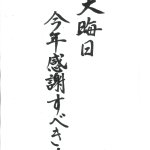 大晦日
今年感謝すべき.